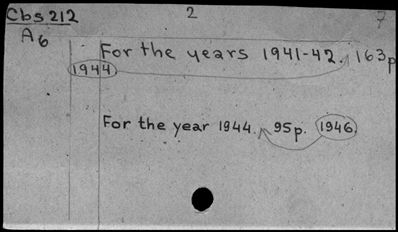 Cbs 212 2 7
A6
For the years 1941-42. 163p
1944
For the year 1944. 95p. 1946